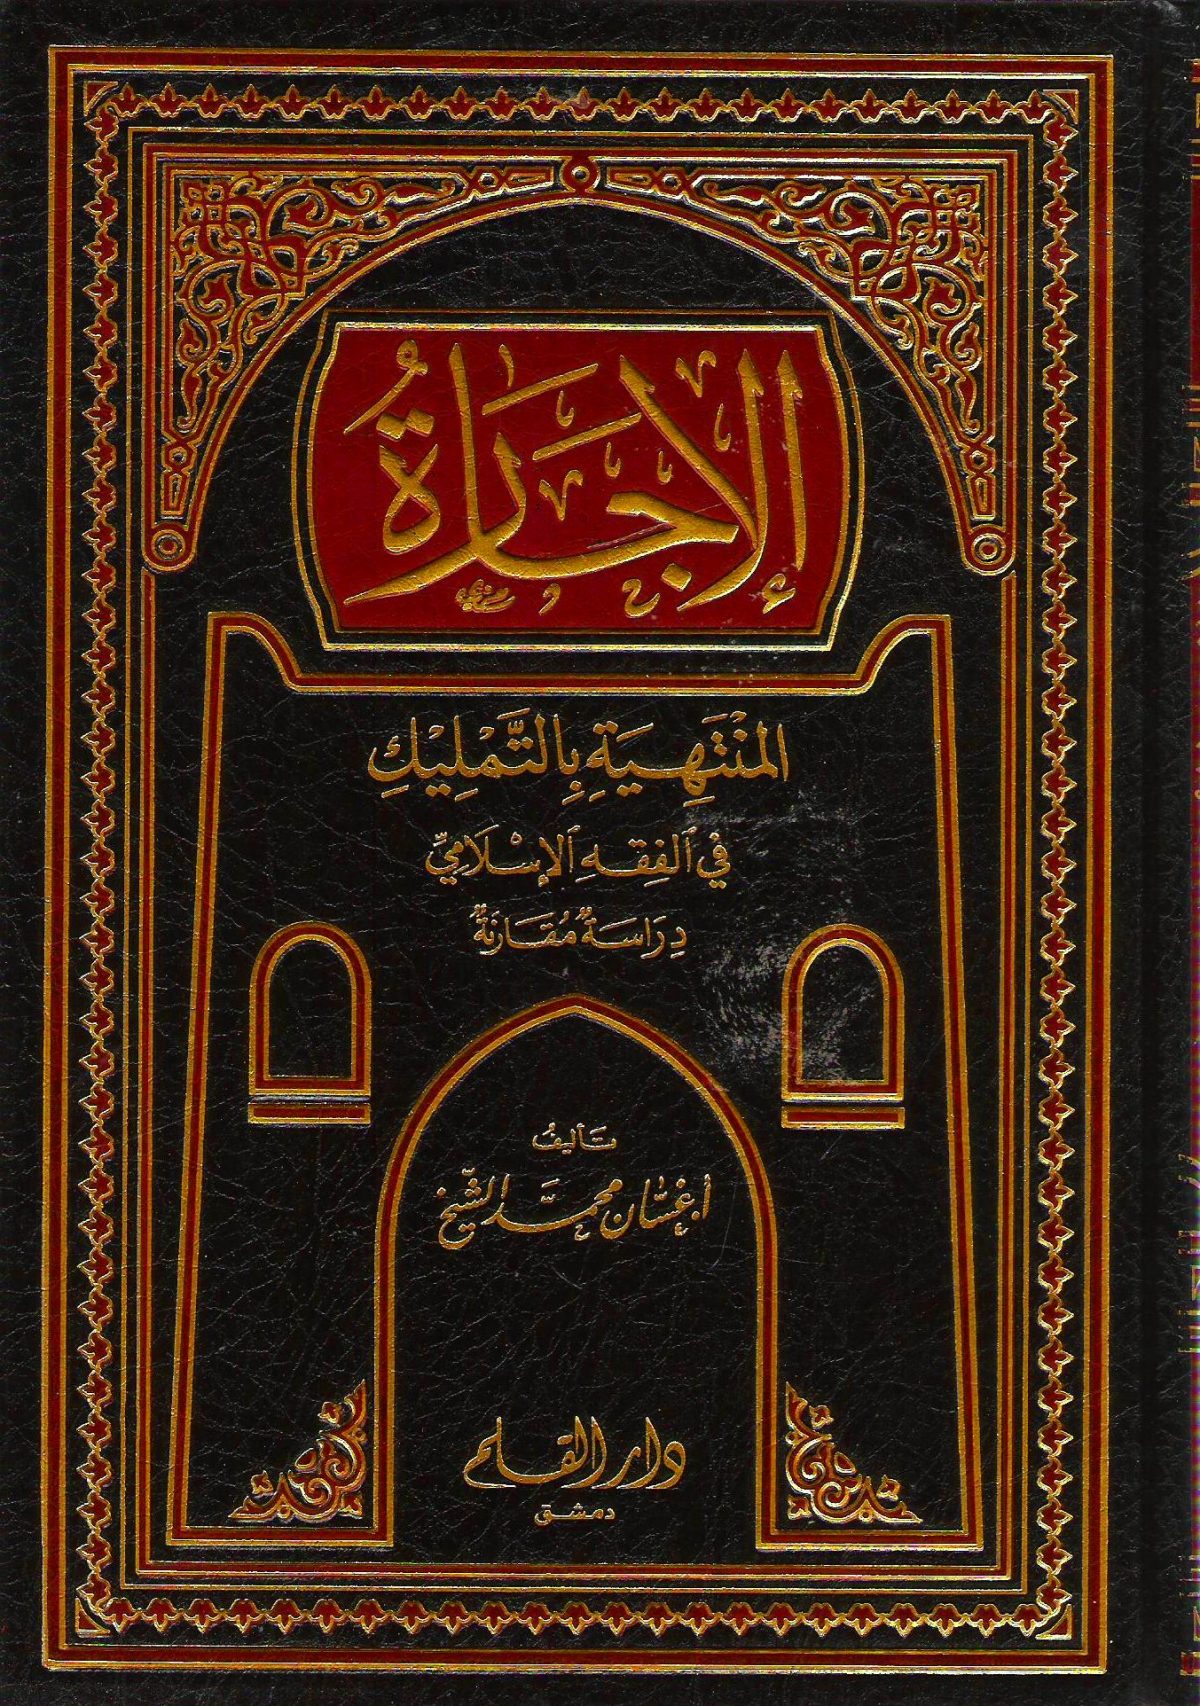 الإجَارَةُ
المُنْتَهِيَةِ بِالتَّمْلِيكِ
في الفِقهِ الإسْلَامِيِّ
دِرَاسَةٌ مُقَارَنَةٌ
تَأليفُ
أ. غسَّان محمَّد الشَّيخ
دار القلم
دمشق